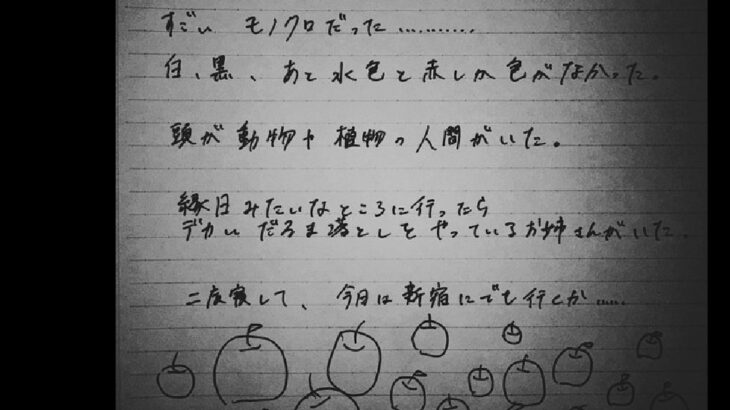 すごい モノクロだった…………
白、黒、あと水色と赤しか色がなかった。
頭が動物や植物の人間がいた。
縁日みたいなところに行ったら
デカいだるま落としをやっているお姉さんがいた。
二度寝して、今日は新宿にでも行くか……